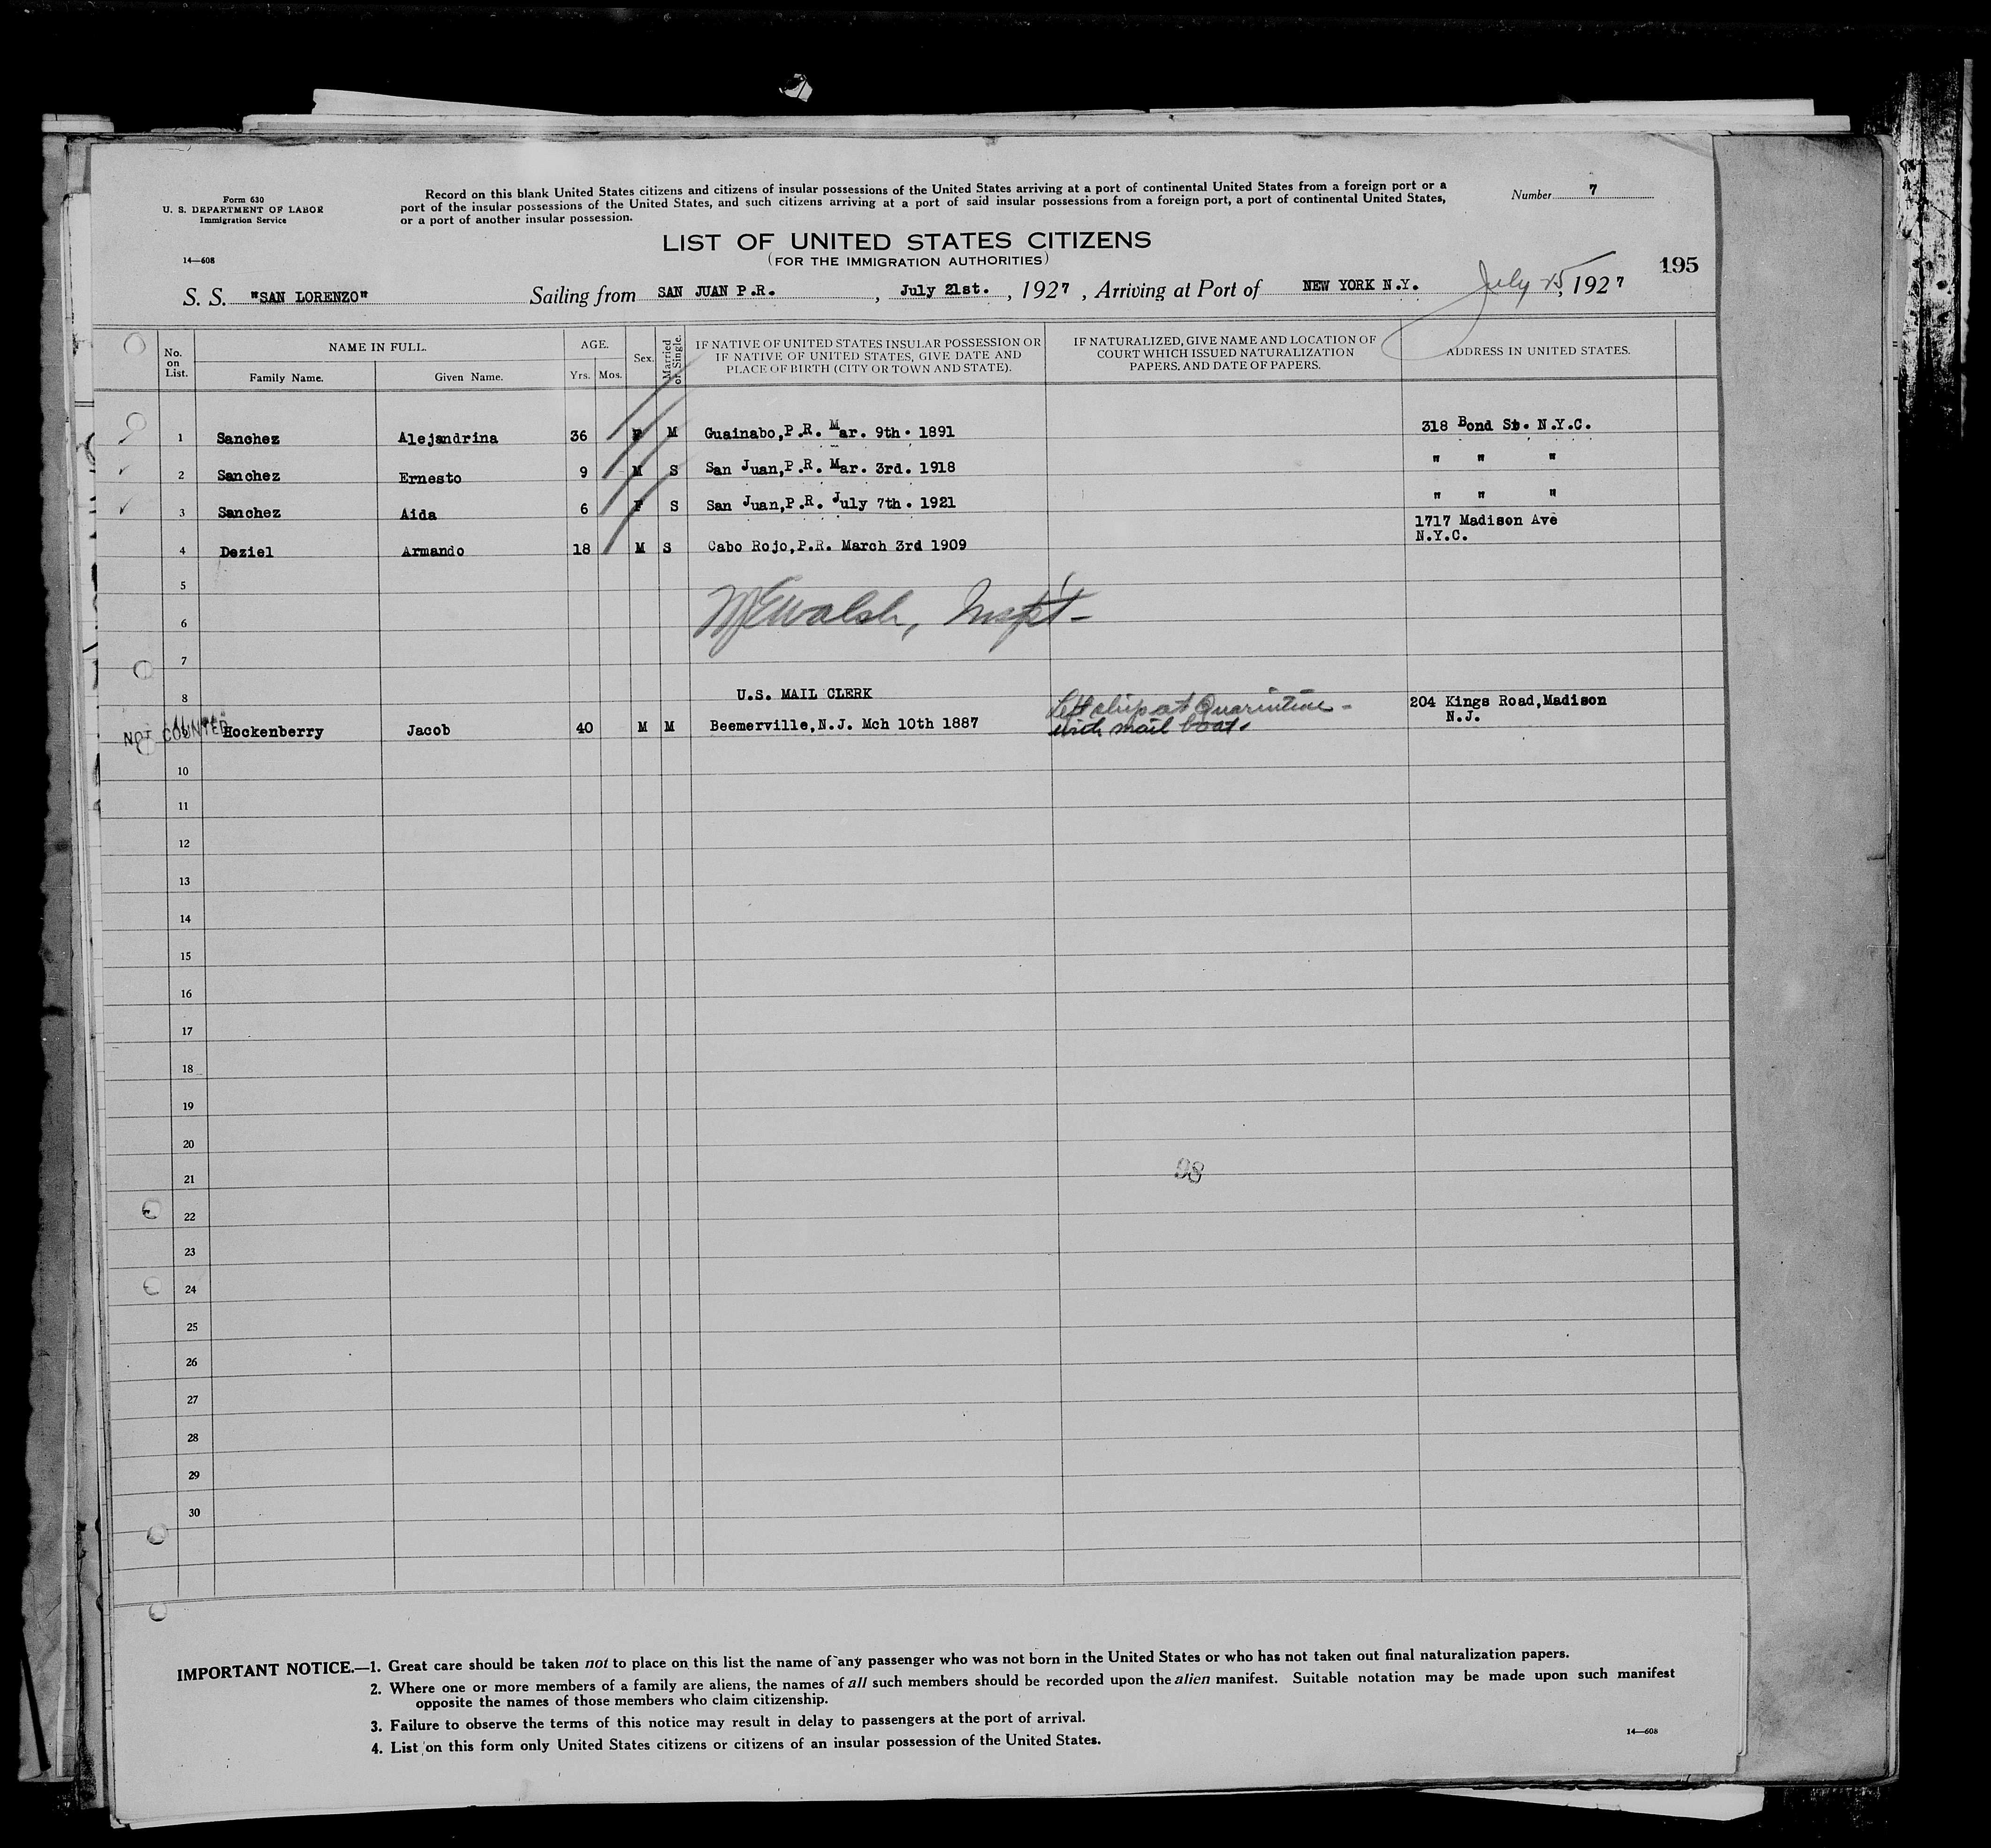 Form 630
U. S. DEPARTMENT OF LABOR
Immigration Service
14—608
Record on this blank United States citizens and citizens of insular possessions of the United States arriving at a port of continental United States from a foreign port or a
port of the insular possessions of the United States, and such citizens arriving at a port of said insular possessions from a foreign port, a port of continental United States,
or a port of another insular possession.
Number 7
LIST OF UNITED STATES CITIZENS
(FOR THE IMMIGRATION AUTHORITIES)
195
S. S. "SAN LORENZO" Sailing from SAN JUAN P.R. , July 21st. , 1927 , Arriving at Port of NEW YORK N.Y. July 25, 1927
No. on List.
NAME IN FULL.
Family Name. Given Name.
AGE.
Yrs. Mos.
Sex.
Married or Single.
IF NATIVE OF UNITED STATES INSULAR POSSESSION OR
IF NATIVE OF UNITED STATES, GIVE DATE AND
PLACE OF BIRTH (CITY OR TOWN AND STATE).
IF NATURALIZED, GIVE NAME AND LOCATION OF
COURT WHICH ISSUED NATURALIZATION
PAPERS, AND DATE OF PAPERS.
ADDRESS IN UNITED STATES.
1 Sanchez Alejandrina 36 F M Guainabo,P.R. Mar. 9th. 1891 318 Bond St. N.Y.C.
2 Sanchez Ernesto 9 M S San Juan,P.R. Mar. 3rd. 1918 " " "
3 Sanchez Aida 6 F S San Juan,P.R. July 7th. 1921 " " "
4 Deziel Armando 18 M S Cabo Rojo,P.R. March 3rd 1909 1717 Madison Ave
N.Y.C.
5
6 Walsh, Insp't-
7
8 U.S. MAIL CLERK
NOT COUNTED 9 Hockenberry Jacob 40 M M Beemerville,N.J. Mch 10th 1887 Left ship at Quarintine - 204 Kings Road,Madison
with mail boat. N.J.
10
11
12
13
14
15
16
17
18
19
20
21 98
22
23
24
25
26
27
28
29
30
IMPORTANT NOTICE.—1. Great care should be taken not to place on this list the name of any passenger who was not born in the United States or who has not taken out final naturalization papers.
2. Where one or more members of a family are aliens, the names of all such members should be recorded upon the alien manifest. Suitable notation may be made upon such manifest
opposite the names of those members who claim citizenship.
3. Failure to observe the terms of this notice may result in delay to passengers at the port of arrival.
4. List on this form only United States citizens or citizens of an insular possession of the United States.
14—608